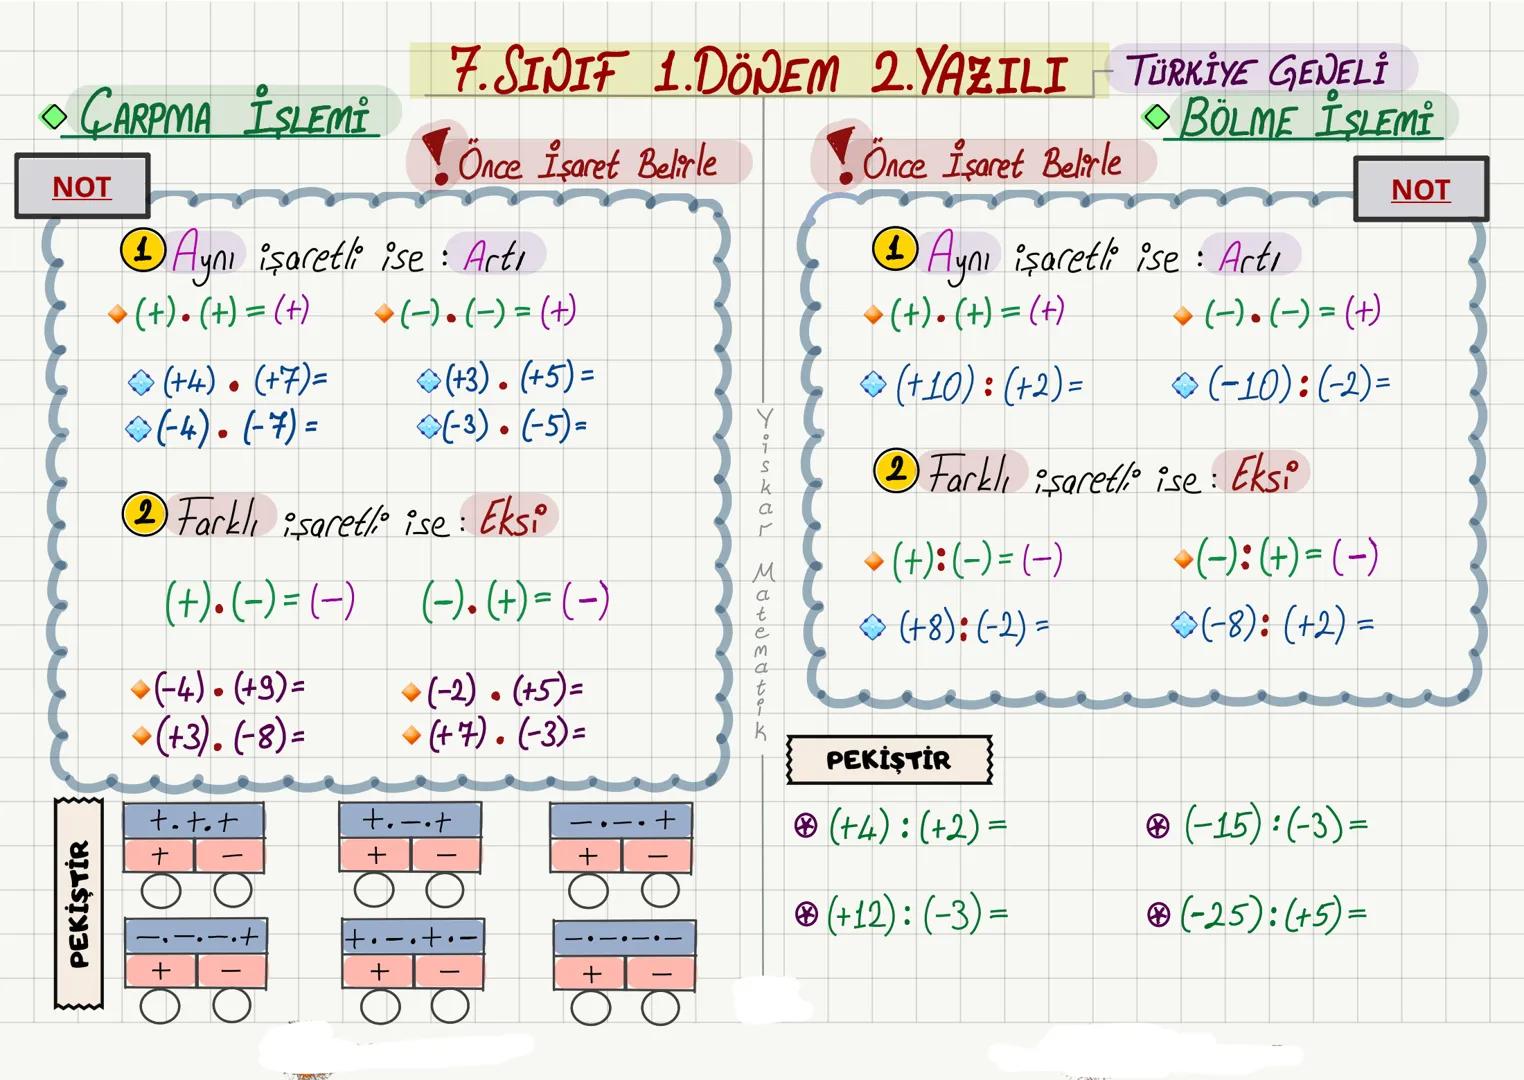 7.SINIF 1.DÖNEM 2.YAZILI
TÜRKİYE GENELİ
ÇARPMA İŞLEMİ
! Önce İşaret Belirle
NOT
1 Aynı işaretli ise : Artı
(+).(+)=(+) (-).(-)=(+)
(+4) . (+7)= (+3) . (+5)=
(-4) . (-7)= (-3) . (-5)=
2 Farklı işaretli ise : Eksi
(+).(-)=(-) (-).(+)=(-)
(-4) . (+9)= (-2) . (+5)=
(+3) . (-8)= (+7) . (-3)=
PEKİŞTİR
+.+.+ +.-.+ -.-.+
+ - + - + -
-.-.-.+ +.-.+.- -.-.-.-
+ - + - + -
Yiskar Matematik
BÖLME İŞLEMİ
! Önce İşaret Belirle
NOT
1 Aynı işaretli ise : Artı
(+).(+)=(+) (-).(-)=(+)
(+10):(+2)= (-10):(-2)=
2 Farklı işaretli ise : Eksi
(+):(-)=(-) (-):(+)=(-)
(+8):(-2)= (-8):(+2)=
PEKİŞTİR
(+4):(+2)= (-15):(-3)=
(+12):(-3)= (-25):(+5)=